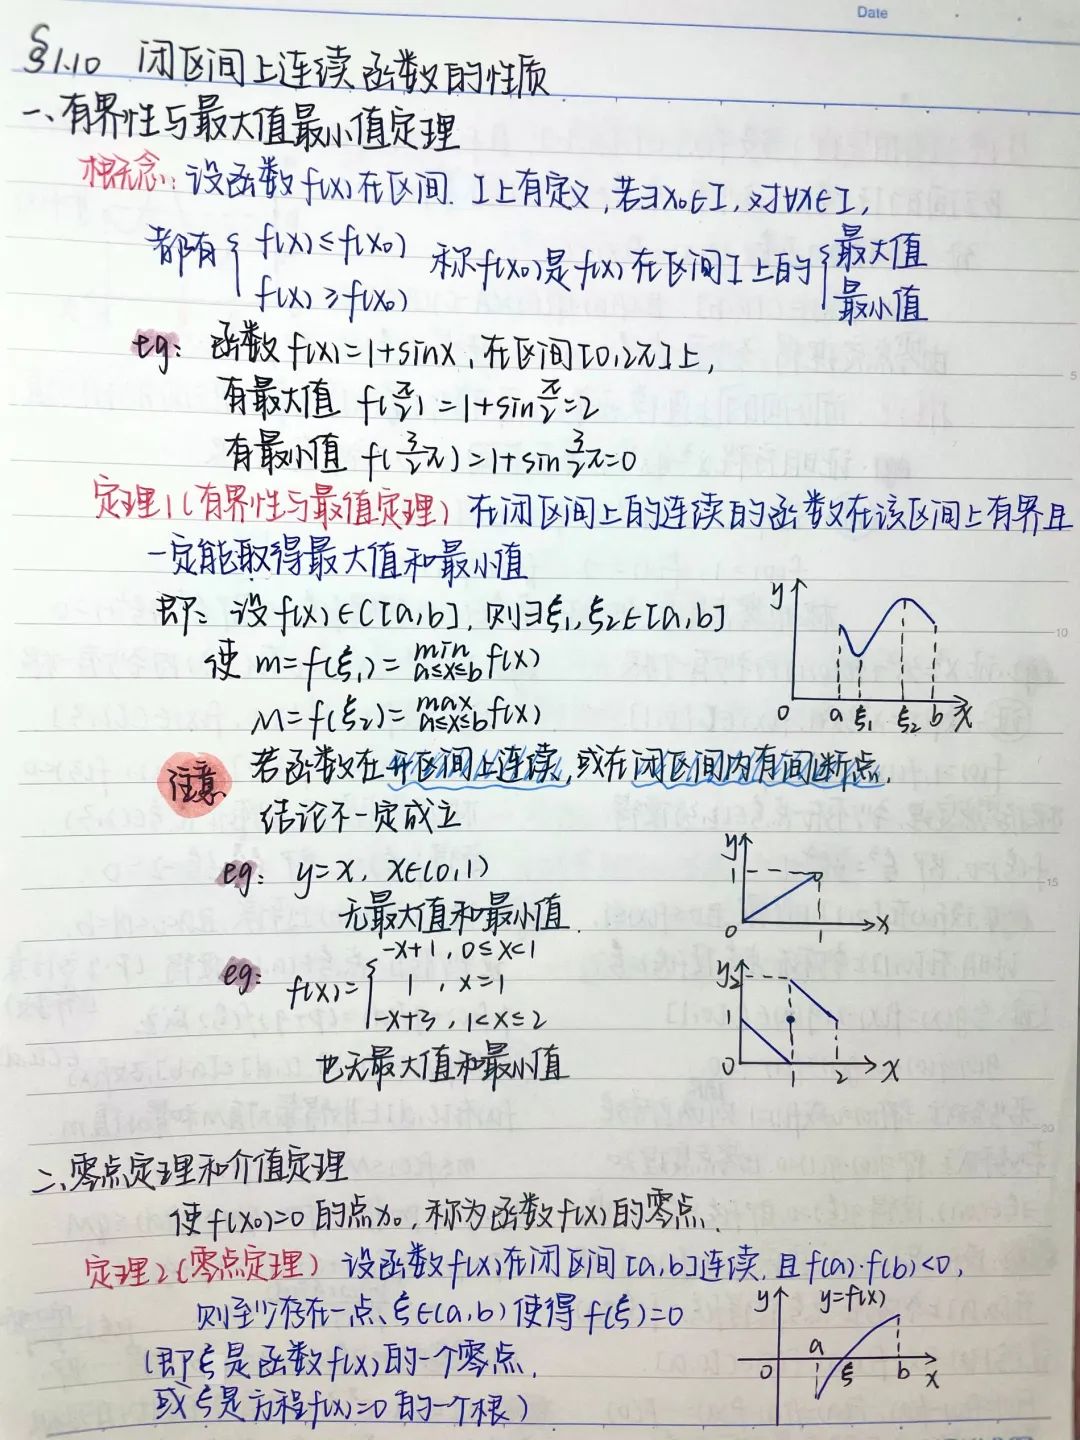 Date
§1.10 闭区间上连续函数的性质
一、有界性与最大值最小值定理
概念：设函数f(x)在区间 I上有定义，若∃x₀∈I，对∀x∈I，
都有{ f(x)≤f(x₀) 称f(x₀)是f(x)在区间I上的{ 最大值
f(x)≥f(x₀) 最小值
eg：函数f(x)=1+sinx，在区间[0,2π]上，
有最大值 f(π/2)=1+sin π/2=2
有最小值 f(3/2π)=1+sin 3/2π=0
定理1（有界性与最值定理）在闭区间上的连续的函数在该区间上有界且
一定能取得最大值和最小值
即：设f(x)∈C[a,b]，则∃ξ₁,ξ₂∈[a,b]
使 m=f(ξ₁)=min a≤x≤b f(x)
M=f(ξ₂)=max a≤x≤b f(x)
y
0 a ξ₁ ξ₂ b x
注意 若函数在开区间上连续，或在闭区间内有间断点，
结论不一定成立
eg：y=x，x∈(0,1)
无最大值和最小值.
y
1
0 1 x
eg：f(x)={ -x+1，0≤x<1
1，x=1
-x+3，1<x≤2
也无最大值和最小值
y
2
1
0 1 2 x
二、零点定理和介值定理
使f(x₀)=0的点x₀，称为函数f(x)的零点.
定理2（零点定理）设函数f(x)在闭区间[a,b]连续，且f(a)·f(b)<0，
则至少存在一点ξ∈(a,b)使得f(ξ)=0
（即ξ是函数f(x)的一个零点，
或ξ是方程f(x)=0的一个根）
y y=f(x)
a
0 ξ b x
5
10
15
20